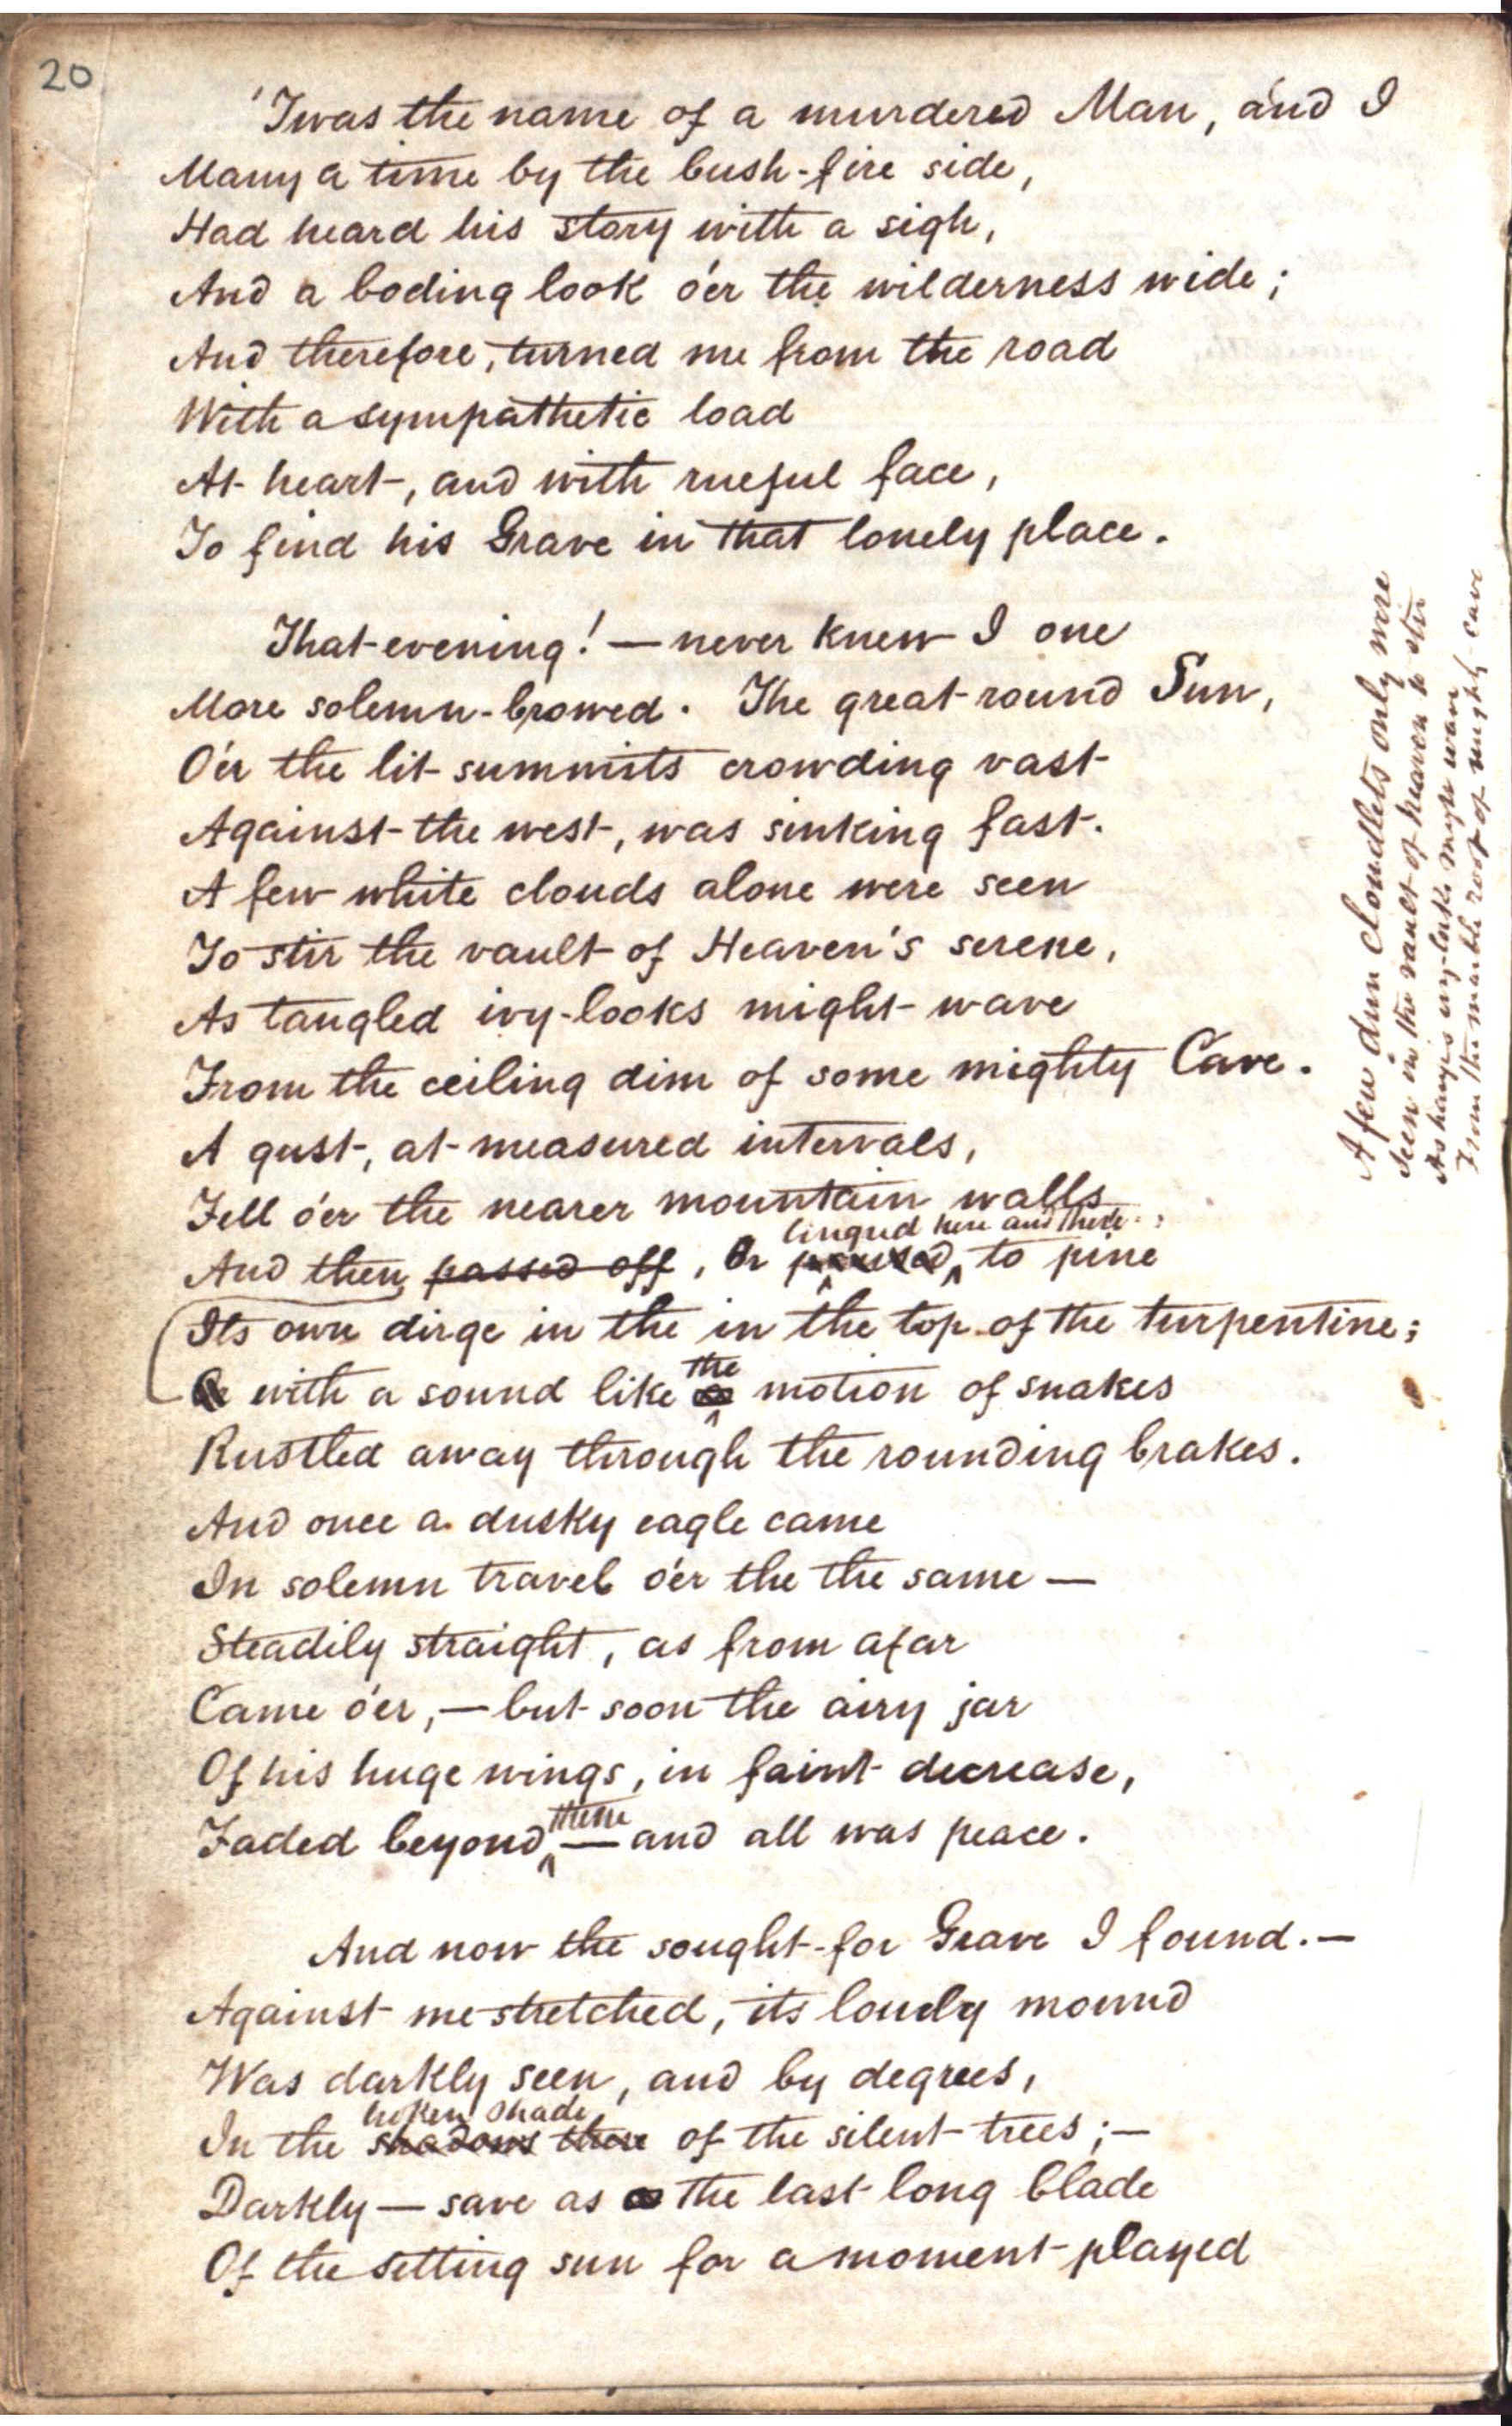 20
'Twas the name of a murdered Man, and I
Many a time by the bush-fire side,
Had heard his story with a sigh,
And a boding look o'er the wilderness wide;
And therefore, turned me from the road
With a sympathetic load
At heart, and with rueful face,
To find his Grave in that lonely place.
That evening! — never knew I one
More solemn-browed. The great round Sun,
O'er the lit summits crowding vast
Against the west, was sinking fast.
A few white clouds alone were seen
To stir the vault of Heaven's serene,
As tangled ivy-looks might wave
From the ceiling dim of some mighty Cave.
A gust, at measured intervals,
Fell o'er the nearer mountain walls
lingred here and there
And then passed off, Or paused, to pine
Its own dirge in the in the top of the turpentine;
Or with a sound like
the
motion of snakes
Rustled away through the rounding brakes.
And once a dusky eagle came
In solemn travel o'er the the same —
Steadily straight, as from afar
Came o'er, — but soon the airy jar
Of his huge wings, in faint decrease,
them
Faded beyond — and all was peace.
And now the sought-for Grave I found. —
Against me stretched, its lonely mound
Was darkly seen, and by degrees,
broken shade
In the shadows there of the silent trees; —
Darkly — save as the last long blade
Of the setting sun for a moment played
A few dun cloudlets only were
Seen in the vault of heaven to stir
As hangs ivy-locks might wave
From the marble roof of mighty cave